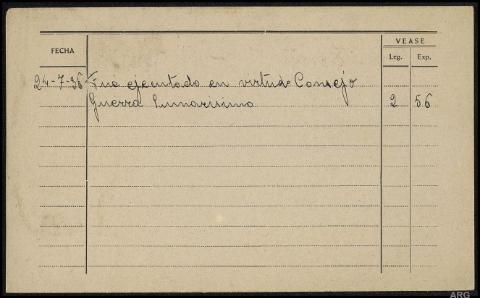 VEASE
FECHA Leg. Exp.
24-7-36 Fue ejecutado en virtud Consejo
Guerra Sumarisimo 2 56
ARG